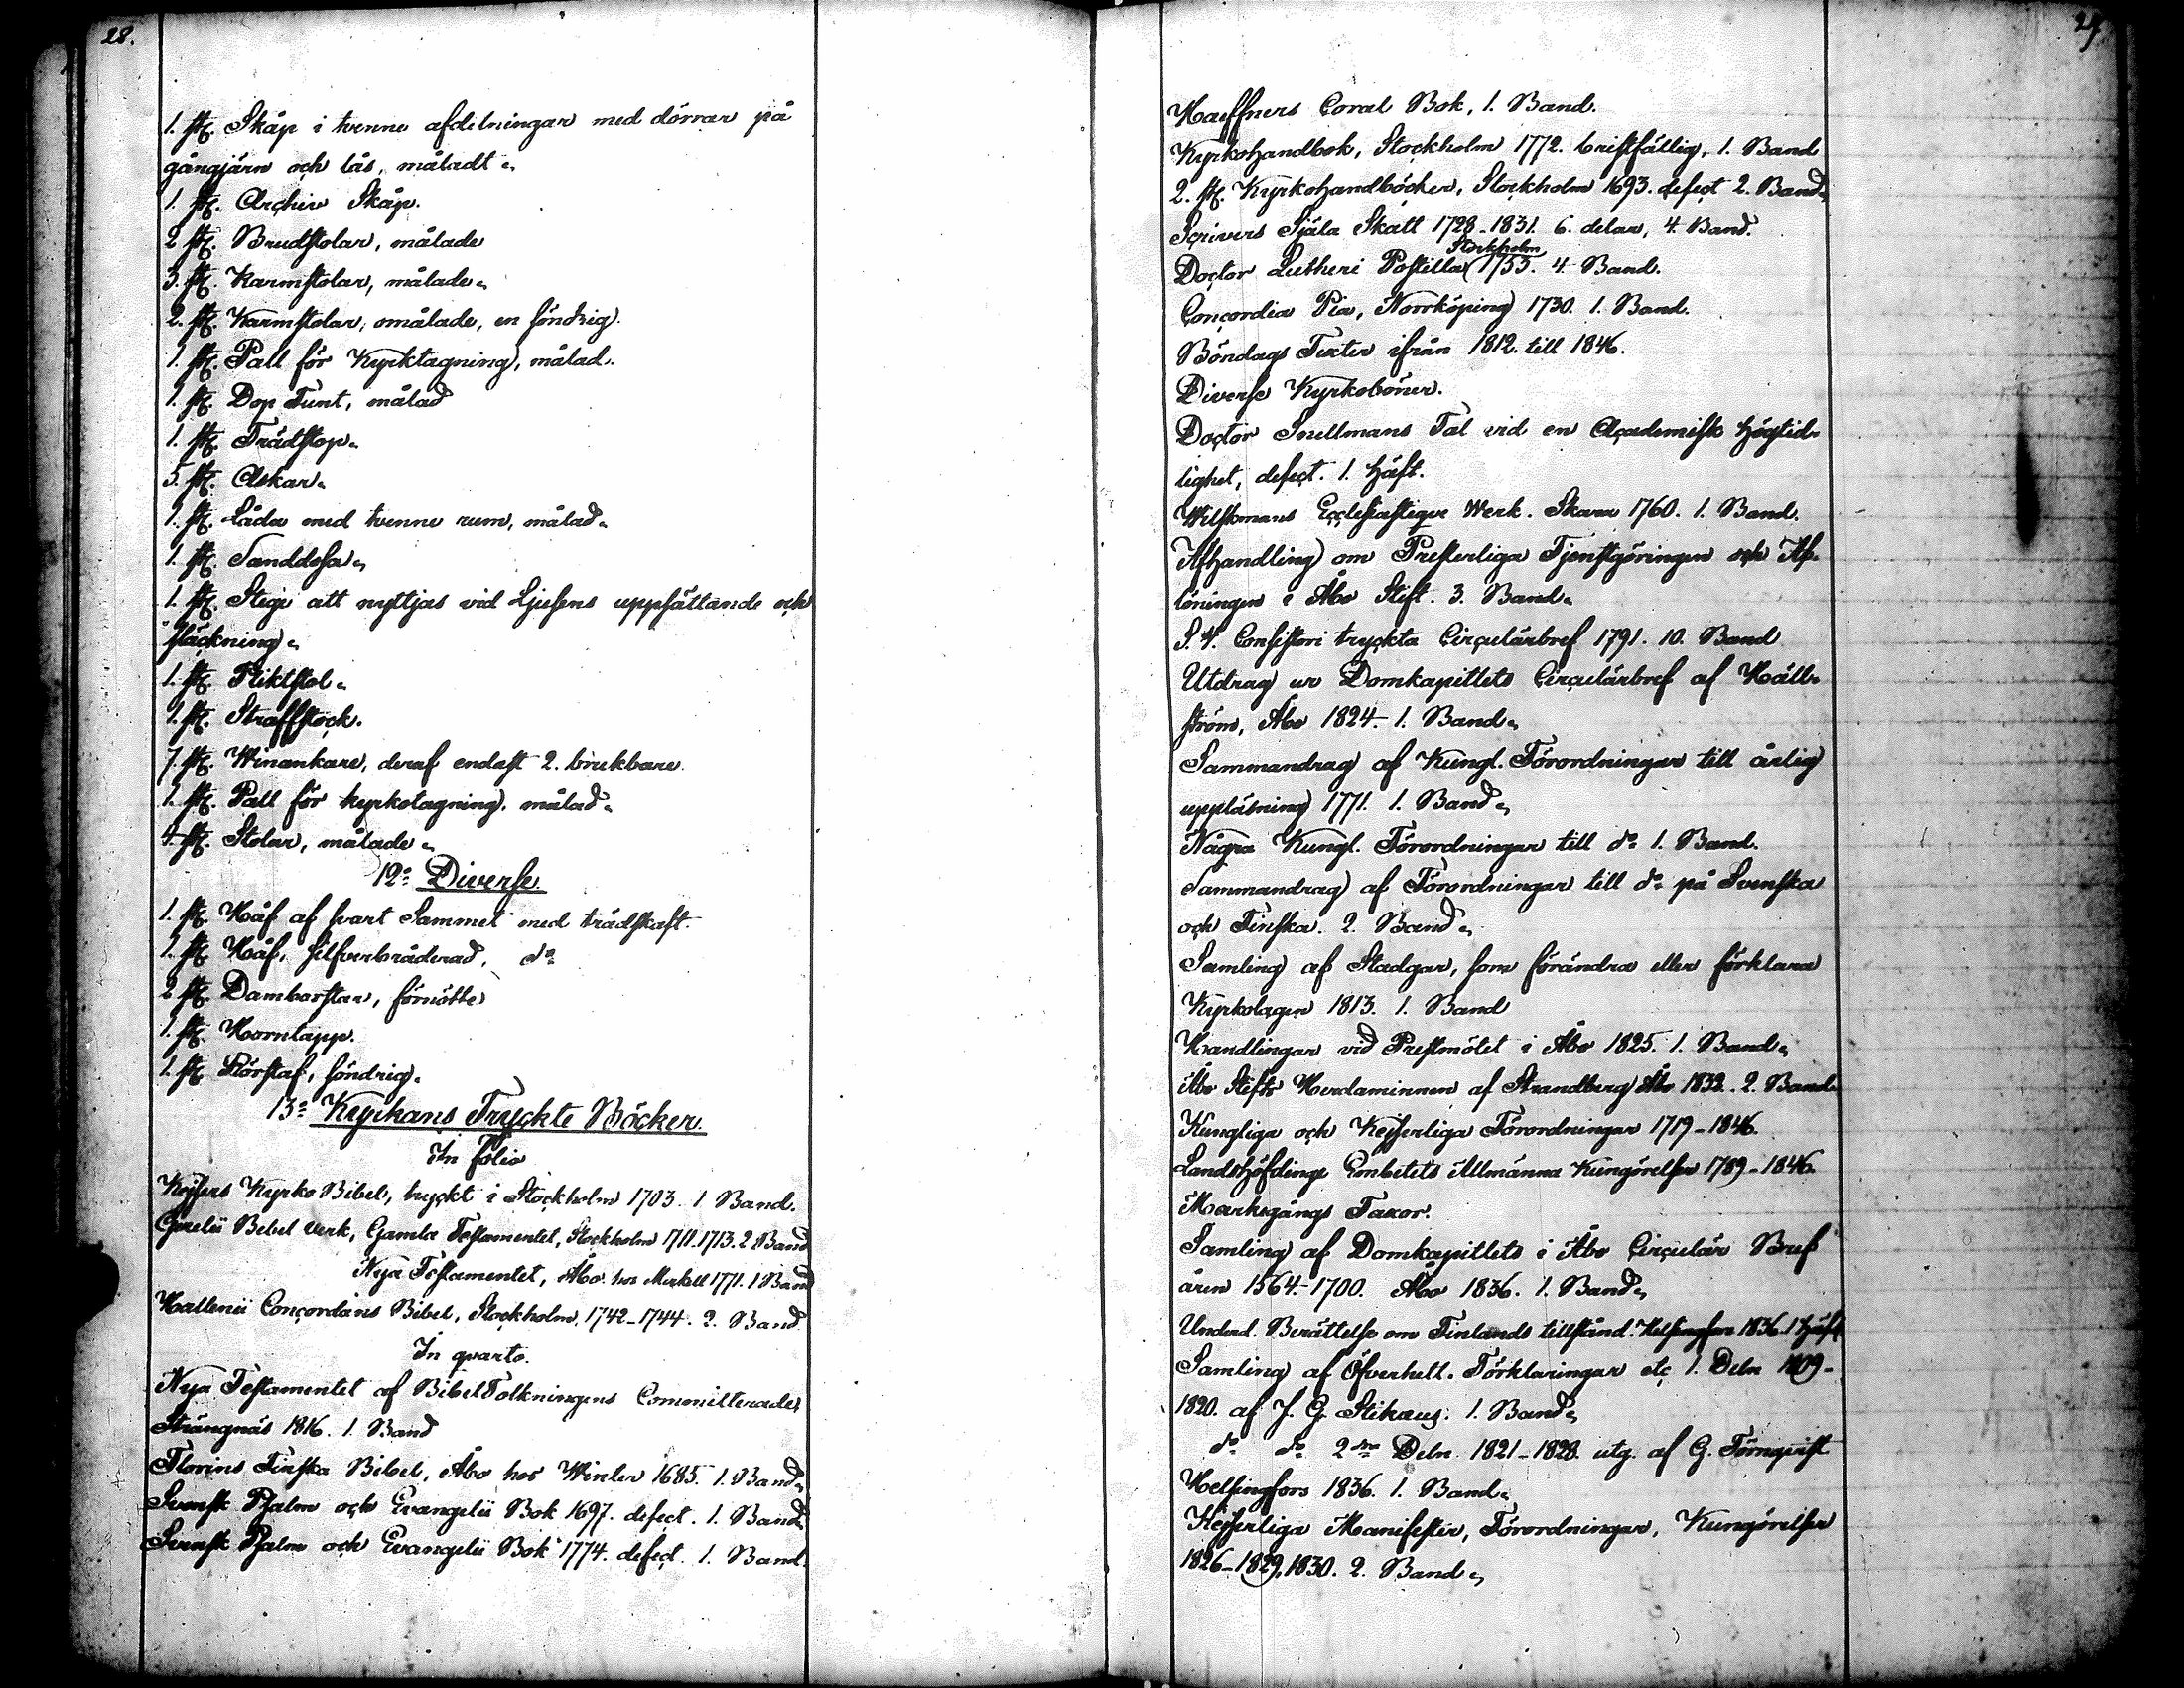 28.
1. st. Skåp i tvenne afdelningar med dörrar på
gångjärn och lås, måladt.
1. st. Archiv Skåp.
2 st. Brudstolar, målade
3. st. Karmstolar, målade.
2. st. Karmstolar, omålade, en söndrig.
1. st. Pall för Kyrktagning, målad.
1. st. Dop Funt, målad
1. st. Trädstop.
5. st. Askar.
1. st. Låda med tvenne rum, målad.
1. st. Sanddosa.
1. st. Stege att nyttjas vid Ljusens uppsättande och
släckning.
1. st. Pliktstol.
1. st. Straffstock.
7. st. Winankare, deraf endast 2. brukbare.
1. st. Pall för kyrkotagning, målad.
4 st. Stolar, målade.
12o Diverse.
1. st. Håf af svart Sammet med trädskaft.
1. st. Håf, silfverbräderad, do
2 st. Damborstar, förnötte
1. st. Korntapp.
1. st. Störstaf, söndrig.
13o Kyrkans Tryckte Böcker.
In folio
Kejsers Kyrko Bibel, tryckt i Stockholm 1703. 1 Band.
Gezelii Bibel verk, Gamla Testamentet, Stockholm 1711-1713. 2 Band
Nya Testamentet, Åbo hos Merkell 1771. 1 Band
Hallenii Concordans Bibel, Stockholm, 1742-1744. 2. Band
In qvarto.
Nya Testamentet af Bibel Tolkningens Committerade,
Strängnäs 1816. 1. Band
Florins Finska Bibel, Åbo hos Winter 1685. 1. Band.
Svensk Psalm och Evangelii Bok 1697. defect. 1. Band.
Svensk Psalm och Evangelii Bok 1774. defect. 1. Band.
29
Haeffners Coral Bok, 1. Band.
Kyrkohandbok, Stockholm 1772. bristfällig, 1. Band
2. st. Kyrkohandböcker, Stockholm 1693. defect 2. Band.
Scrivers Själa Skatt 1728-1831. 6. delar, 4. Band.
Stockholm
Doctor Lutheri Postilla 1753. 4. Band.
Concordia Pia, Norrköping 1730. 1. Band.
Böndags Texter ifrån 1812. till 1846.
Diverse Kyrkoböner.
Doctor Snellmans Tal vid en Academisk högtid-
lighet, defect. 1. häft.
Wilskmans Ecclesiastique Werk. Skara 1760. 1. Band.
Afhandling om Presterliga Tjenstgöringen och Af-
löningen i Åbo Stift. 3. Band.
S. V. Consistori tryckta Circulärbref 1791. 10. Band
Utdrag ur Domkapitlets Circulärbref af Häll-
ström, Åbo 1824. 1. Band.
Sammandrag af Kungl. Förordningar till årlig
uppläsning 1771. 1. Band.
Några Kungl. Förordningar till do 1. Band.
Sammandrag af Förordningar till do på Svenska
och Finska. 2. Band.
Samling af Stadgar, som förändra eller förklara
Kyrkolagen 1813. 1. Band
Handlingar vid Prestmötet i Åbo 1825. 1. Band.
Åbo Stifts Herdaminnen af Strandberg Åbo 1832. 2. Band.
Kungliga och Kejserliga Förordningar 1719-1846.
Landshöfdinge Embetets Allmänna Kungörelser 1789-1846.
Markegångs Taxor.
Samling af Domkapitlets i Åbo Circulär Bref
åren 1564-1700. Åbo 1836. 1. Band.
Underd. Berättelse om Finlands tillstånd. Helsingfors 1836. 1 häft
Samling af Öfverhett. Förklaringar etc 1. Deln 1809-
1820. af J. G. 1. Band.
do do 2dra Deln 1821-1828. utg. af G. Törnqvist
Helsingfors 1836. 1. Band.
Kejserliga Manifester, Förordningar, Kungörelser
1826-1829, 1830. 2. Band.